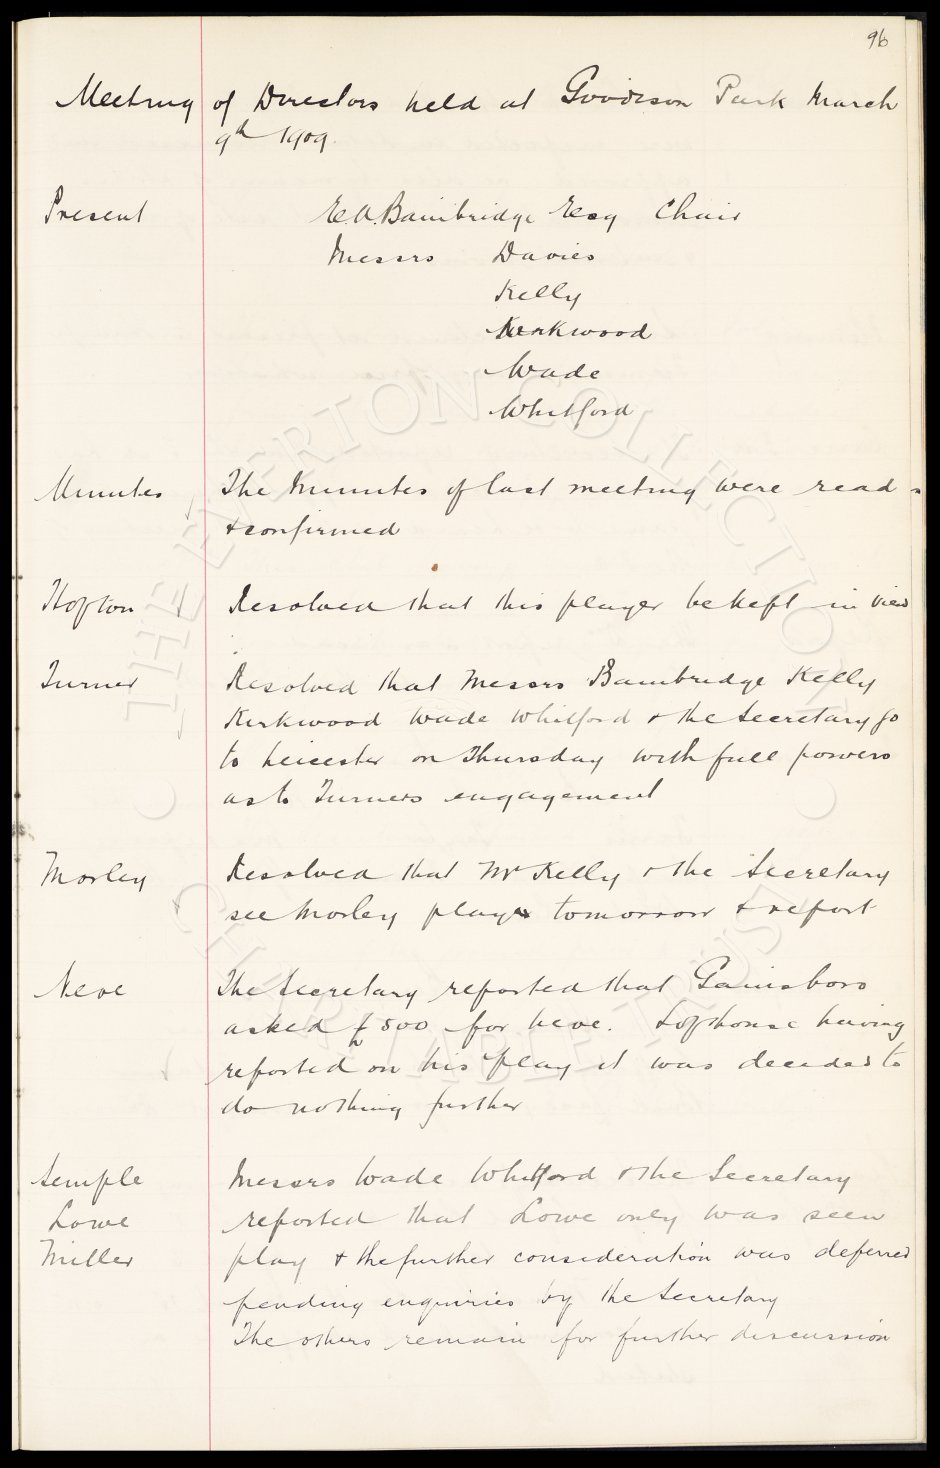 96
Meeting of Directors held at Goodison Park March
9th 1909.
Present E.A. Bainbridge Esq Chair
Messrs Davies
Kelly
Kirkwood
Wade
Whitford
Minutes The Minutes of last meeting were read
& confirmed
Hopton Resolved that this player be kept in view
Turner Resolved that Messrs Bainbridge Kelly
Kirkwood Wade Whitford & the Secretary go
to Leicester on Thursday with full powers
as to Turners engagement
Morley Resolved that Mr Kelly & the Secretary
see Morley play tomorrow & report
Neve The Secretary reported that Gainsboro
asked £500 for Neve. Lofthouse having
reported on his play it was decided to
do nothing further
Semple Messrs Wade Whitford & the Secretary
Lowe reported that Lowe only was seen
Miller play & the further consideration was deferred
pending enquiries by the Secretary
The others remain for further discussion
THE EVERTON COLLECTION
CHARITABLE TRUST